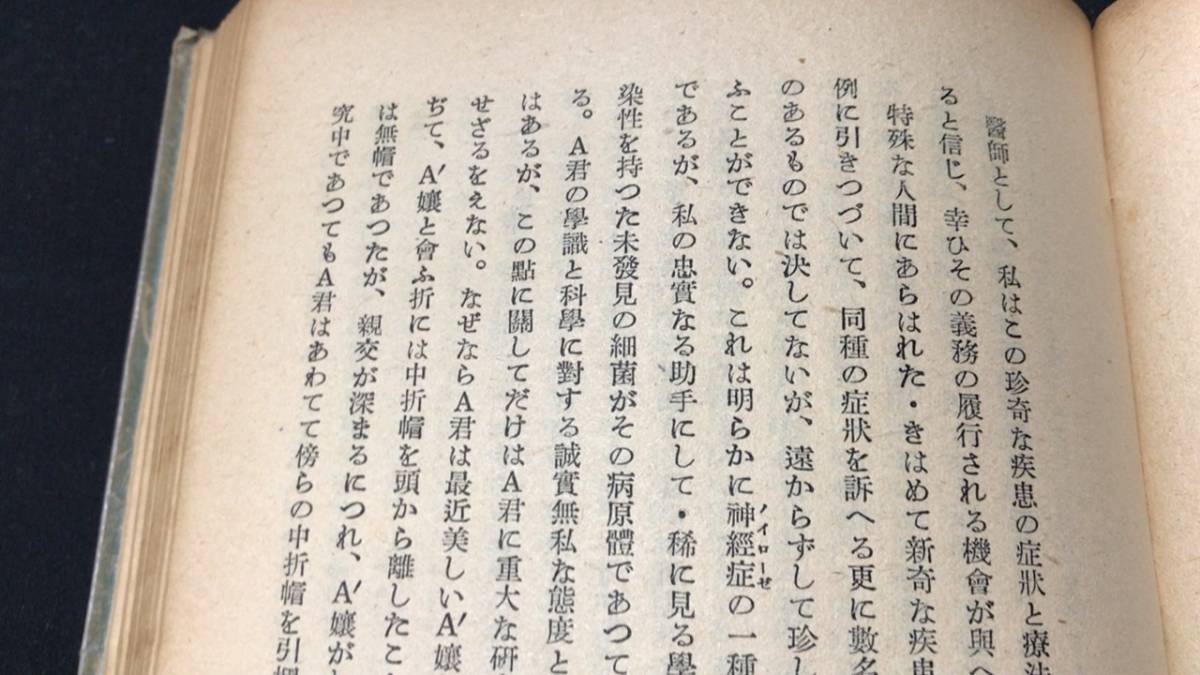 醫師として、私はこの珍奇な疾患の症狀と療法
ると信じ、幸ひその義務の履行される機會が與へ
特殊な人間にあらはれた・きはめて新奇な疾患
例に引きつづいて、同種の症狀を訴へる更に數名
のあるものでは決してないが、遠からずして珍し
ふことができない。これは明らかに神經症ノイローゼの一種
であるが、私の忠實なる助手にして・稀に見る學
染性を持つた未發見の細菌がその病原體であつて
る。A君の學識と科學に對する誠實無私な態度と
はあるが、この點に關してだけはA君に重大な研
せざるをえない。なぜならA君は最近美しいA′孃
ぢて、A′孃と會ふ折には中折帽を頭から離したこ
は無帽であつたが、親交が深まるにつれ、A′孃が
究中であつてもA君はあわてて傍らの中折帽を引